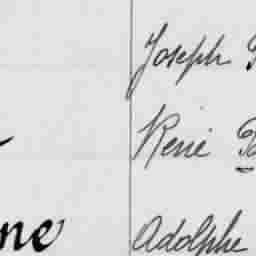 Joseph
René
ne Adolphe